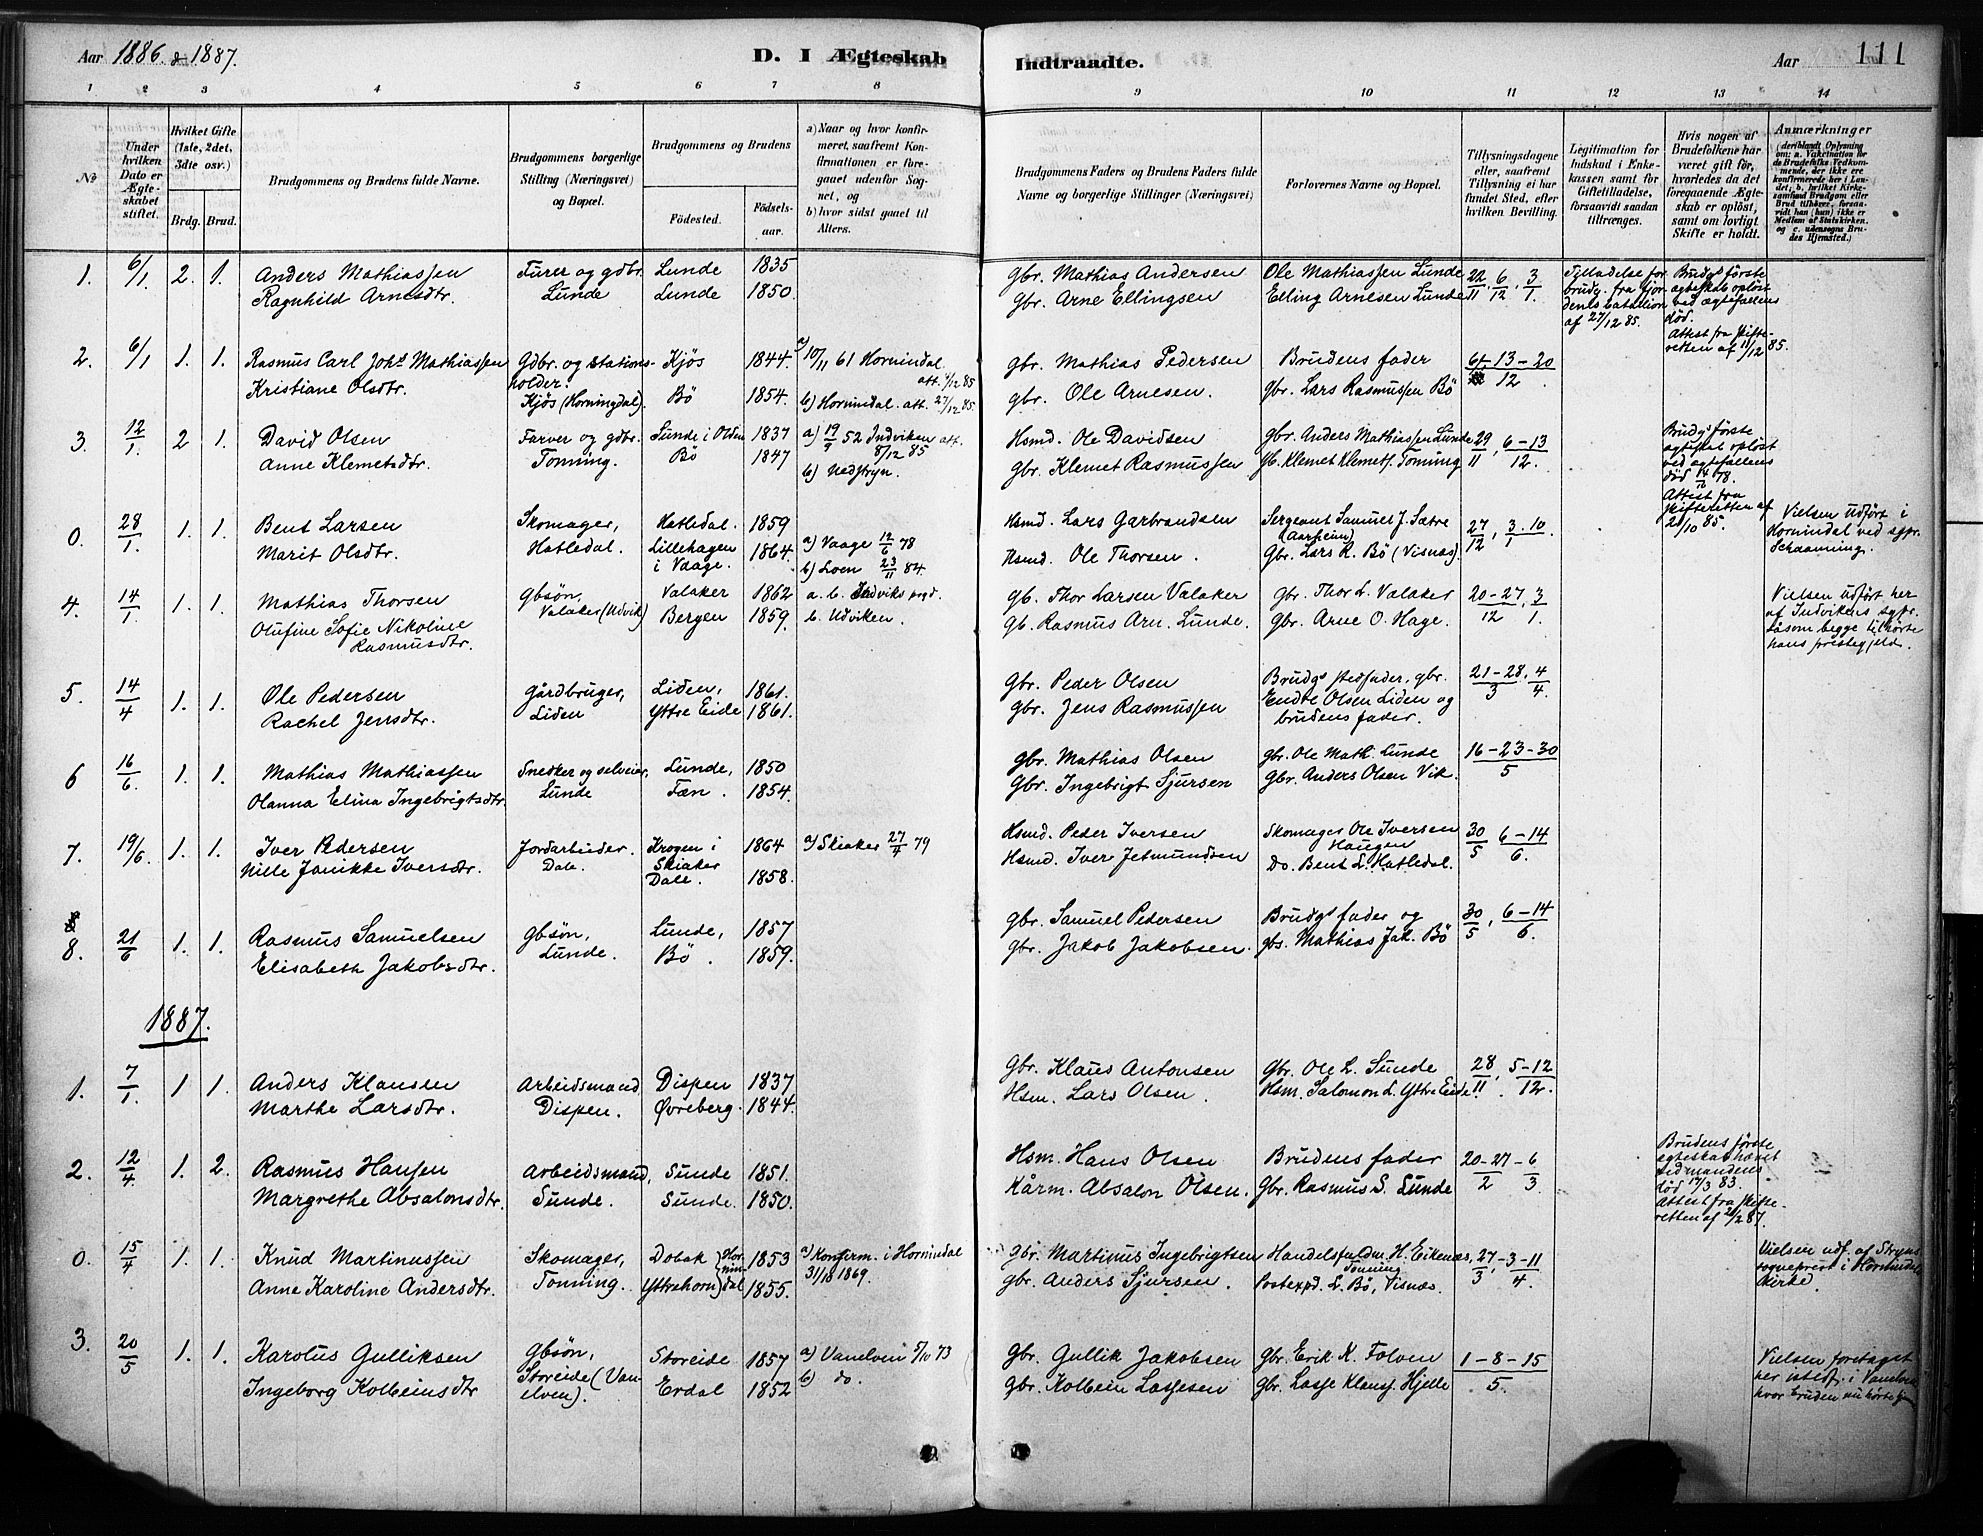 Aar 1886 & 1887.
D. I Ægteskab
Indtraadte.
Aar
111
1 2 3 4 5 6 7 8 9 10 11 12 13 14
No
Under hvilken Dato er Ægteskabet stiftet.
Hvilket Gifte (1ste, 2det, 3die osv.)
Brdg. Brud.
Brudgommens og Brudens fulde Navne.
Brudgommens borgerlige Stilling (Næringsvei) og Bopæl.
Brudgommens og Brudens
Födested. Födselsaar.
a) Naar og hvor konfirmeret, saafremt Konfirmationen er foregaaet udenfor Sognet, og
b) hvor sidst gaaet til Alters.
Brudgommens Faders og Brudens Faders fulde Navne og borgerlige Stillinger (Næringsvei)
Forlovernes Navne og Bopæl.
Tillysningsdagene eller, saafremt Tillysning ei har fundet Sted, efter hvilken Bevilling.
Legitimation for Indskud i Enkekassen samt for Giftetilladelse, forsaavidt saadan tiltrænges.
Hvis nogen af Brudefolkene har været gift för, hvorledes da det foregaaende Ægteskab er oplöst, samt om lovligt Skifte er holdt.
Anmærkninger (deriblandt Oplysning om: a. Vakcination for de Brudefolks Vedkommende, der ikke ere konfirmerede her i Landet; b. hvilket Kirkesamfund Brudgom eller Brud tilhörer, forsaavidt han (hun) ikke er Medlem af Statskirken, og c. udensogns Brudes Hjemsted.)
1. 6/1 2. 1. Anders Mathiassen Furer og gdbr. Lunde 1835 Gbr. Mathias Andersen Ole Mathiassen Lunde 22/11, 6/12, 3/1 Tilladelse for brudg. fra fjordenes bataillon af 27/12 85. Brudgs første ægteskab opløst ved ægtefællens død. Attest fra skifteretten af 11/12 85.
Ragnhild Arnesdtr. Lunde Lunde 1850. Gbr. Arne Ellingsen Elling Arnesen Lunde
2. 6/1 1. 1. Rasmus Carl Johs Mathiassen Gdbr. og stationsholder. Kjøs 1844. a) 10/11 61 Hornindal att. /12 85 gbr. Mathias Pedersen Brudens fader 6-13-20/12
Kristiane Olsdtr. Kjøs (Horningdal). Bø 1854. b) Hornindal. att. 27/12 85. gbr. Ole Arnesen. gbr. Lars Rasmussen Bø
3. 12/1 2 1. David Olsen Farver og gdbr. Sunde i Olden 1837 a) 19/9 52 Indviken att. 8/12 85 Hsmd. Ole Davidsen gbr. Anders Mathiassen Lunde 29/11, 6-13/12. Brudgs første ægteskab opløst ved ægtefællens død 78. Attest fra skifteretten af 21/10 85.
Anne Klemetsdtr. Tonning. Bø 1847 b) Nedstryn. Gbr. Klemet Rasmussen gb. Klemet Klemets. Tonning
0. 28/1. 1. 1. Bent Larsen Skomager, Hatledal. 1859 Hsmd. Lars Garbrandsen Sergeant Samuel J. Sætre (Aarheim) 27/12, 3.10/1 Vielsen udført i Hornindal ved sgpr. Schaanning.
Marit Olsdtr. Hatledal. Lillehagen i Vaage. 1864. a) Vaage 12/6 78 b) Loen 23/11 84. Hsmd. Ole Thorsen. Gbr. Lars R. Bø (Visnæs).
4. 14/1 1. 1. Mathias Thorsen Gbsøn, Valaker 1862 a. b. Indviks prgd. Gb. Thor Larsen Valaker gbr. Thor L. Valaker 20-27/12, 3/1. Vielsen udført her af Indvikens sgpr. såsom begge tilhørte hans prestegjeld.
Olufine Sofie Nikoline Rasmusdtr. Valaker (Udvik) Bergen 1859. b. Udviken. Gb. Rasmus Arn. Lunde. gbr. Arne O. Hage.
5. 14/4 1. 1. Ole Pedersen Gårdbruger, Liden, 1861. Gbr. Peder Olsen Brudgs stedfader, gbr. Endre Olsen Liden og brudens fader. 21-28/3, 4/4.
Rachel Jensdtr. Liden Yttre Eide 1861. Gbr. Jens Rasmussen
6 16/6. 1. 1. Mathias Mathiassen Snedker og selveier, Lunde, 1850 Gbr. Mathias Olsen gbr. Ole Math. Lunde 16-23-30/5
Olanna Elina Ingebrigtsdtr. Lunde Fæn. 1854. Gbr. Ingebrigt Sjursen gbr. Anders Olsen Vik.
7. 19/6. 1. 1. Iver Pedersen Jordarbeider. Krogen i Skiaker 1864 a) Skiaker 27/4 79 Hsmd. Peder Iversen Skomager Ole Iversen Haugen 30/5 6-14/6.
Nille Janikke Iversdtr. Dale. Dale. 1858. Hsmd. Iver Jetmundsen Do. Bent L. Hatledal.
8. 21/6 1. 1. Rasmus Samuelsen Gbsøn, Lunde, 1857 gbr. Samuel Pedersen Brudgs fader og 30/5, 6-14/6.
Elisabeth Jakobsdtr. Lunde. Bø. 1859. gbr. Jakob Jakobsen. gbs. Mathias Jak. Bø
1887.
1. 7/1. 1 1. Anders Klausen Arbeidsmand Dispen 1837 Gbr. Klaus Antonsen Gbr. Ole L. Sunde 28/11, 5-12/12.
Marthe Larsdtr. Dispen. Øvreberg. 1844. Hsm. Lars Olsen. Hsm. Salomon L. Yttre Eide
2. 12/4. 1. 2. Rasmus Hansen Arbeidsmand, Sunde 1851. Hsm. Hans Olsen Brudens fader 20-27/2 - 6/3 Brudens første egteskab hævet ved mandens død 17/3 83. Attest fra skifteretten af 2/2 87.
Margrethe Absalonsdtr. Sunde. Sunde. 1850. Kårm. Absalon Olsen. Gbr. Rasmus S. Sunde
0. 15/4 1. 1. Knud Martinussen Skomager, Dobak (Hornindal) 1853 a) Konfirm. i Hornindal 31/10 1869. gbr. Martinus Ingebrigtsen Handelsfuldm. H. Eikenæs, Tonning 27/3, -3-11/4 Vielsen udf. af Stryns sogneprest i Hornindals kirke.
Anne Karoline Andersdtr. Tonning. Yttrehorn 1855. gbr. Anders Sjursen. Postexpd. L. Bø, Visnæs.
3. 20/5 1. 1. Karolus Gulliksen Gbsøn, Storeide 1857 a) Vanelven 5/10 73 Gbr. Gullik Jakobsen Gbr. Erik K. Folven 1-8-15/5. Vielsen foretaget her istedf. i Vanelven hvor bruden nu hørte
Ingeborg Kolbeinsdtr Storeide (Vanelven). Erdal 1852 b) do. Gbr. Kolbein Lassesen Gbr. Lasse Klaus. Hjelle